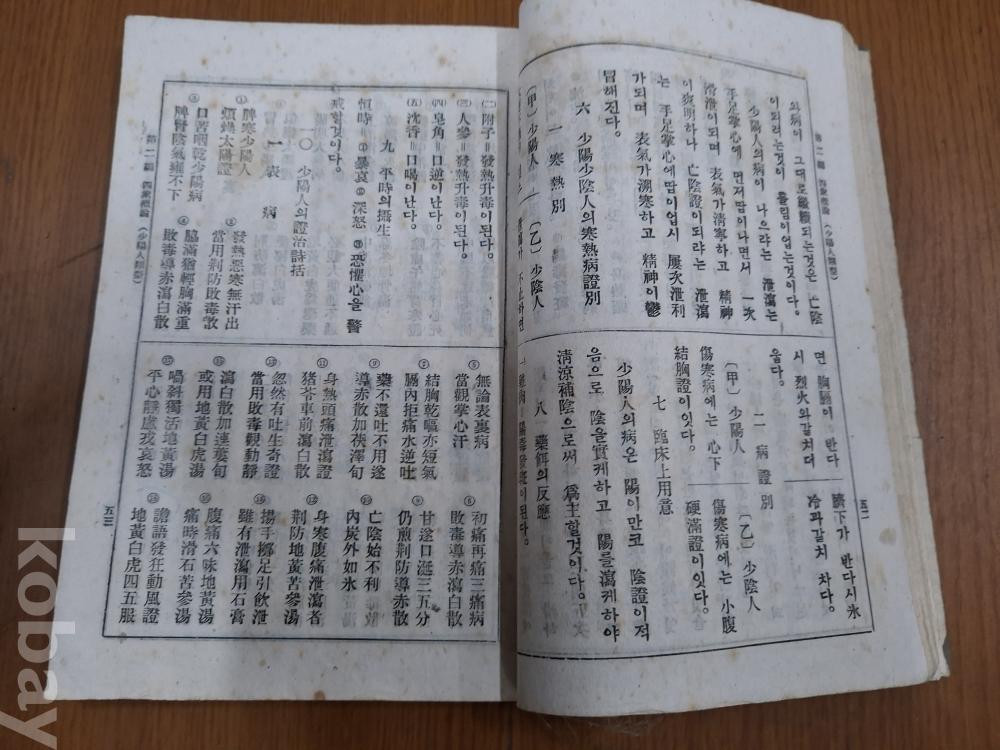 第二編 四象槪論 (少陽人類型)
五二
와病이 그대로緩續되는것은 亡陰
이되려는것이 틀림이업는것이다。
少陽人의病이 나으랴는 泄瀉는
手足掌心에 먼저땀이나면서 一次
滑泄이되며 表氣가淸寧하고 精神
이爽明하나 亡陰證이되랴는 泄瀉
는 手足掌心에땀이업시 屢次泄利
가되며 表氣가溯寒하고 精神이鬱
冒해진다。
六 少陽少陰人의寒熱病證別
一 寒熱別
(甲) 少陽人 (乙) 少陰人
면 胸膈이 반다
시 烈火와갈치더
웁다。
臍下가 반다시氷
冷과갈치 차다。
二 病證別
(甲) 少陽人
傷寒病에는 心下
結胸證이잇다。
(乙) 少陰人
傷寒病에는 小腹
硬滿證이잇다。
七 臨床上用意
少陽人의病은 陽이만코 陰證이적
음으로 陰을實케하고 陽을瀉케하야
淸涼補陰으로써 爲主할것이다。
八 藥餌의反應
(二) 附子=發熱升毒이된다。
(三) 人參=發熱升毒이된다。
(四) 皂角=口逆이난다。
(五) 沈香=口喝이난다。
九 平時의攝生
恒時 ㊀暴哀 ㊁深怒 ㊂恐懼心을 警
戒할것이다。
一〇 少陽人의證治詩括
一 表 病
① 脾寒少陽人
煩燥太陽證
② 發熱惡寒無汗出
當用荆防敗毒散
③ 口苦咽乾少陽病
脾腎陰氣雍不下
④ 脇滿猶輕胸滿重
敗毒導赤瀉白散
⑤ 無論表裏病
當觀掌心汗
⑥ 初痛再痛三痛病
敗毒導赤瀉白散
⑦ 結胸乾嘔亦短氣
膈內拒痛水逆吐
⑧ 甘遂口涎三五分
仍煎荆防導赤散
⑨ 藥不還吐不用遂
導赤散加茯澤旬
⑩ 亡陰始不利
內炭外如氷
⑪ 身熱頭痛泄瀉證
猪苓車前瀉白散
⑫ 身寒腹痛泄瀉者
荆防地黃苦參湯
⑬ 忽然有吐生奇證
當用敗毒觀動靜
⑭ 揚手擲足引飮泄
雖有泄瀉用石膏
⑮ 瀉白散加連蔞旬
或用地黃白虎湯
⑯ 腹痛六味地黃湯
痛時滑石苦參湯
⑰ 喎斜獨活地黃湯
平心靜慮戎哀怒
⑱ 譫語發狂動風證
地黃白虎四五服
第二編 四象槪論 (少陽人類型)
五三
kobay